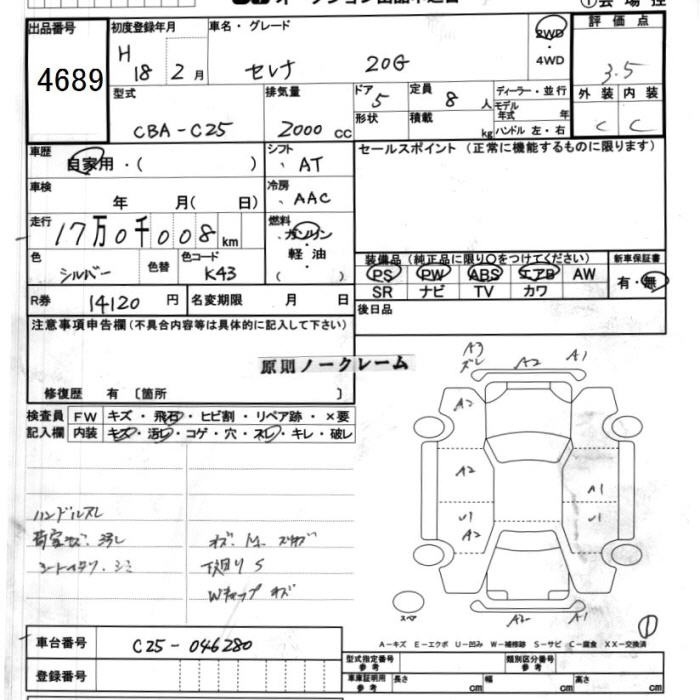 出品番号
4689
初度登録年月
H 18 2月
車名・グレード
セレナ 20G
2WD
・
4WD
評価点
3.5
型式
CBA-C25
排気量
2000 cc
ドア
5
形状
定員
8 人
積載
kg
ディーラー・並行
モデル
年式 年
ハンドル 左・右
外装 内装
C C
車歴
自家用・( )
シフト
AT
セールスポイント (正常に機能するものに限ります)
車検
年 月( 日)
冷房
AAC
走行
17万0千008km
燃料
ガソリン
軽・油
( )
色
シルバー
色替
色コード
K43
装備品 (純正品に限り○をつけてください)
PS PW ABS エアB AW
SR ナビ TV カワ
新車保証書
有・無
R券 14120 円
名変期限 月 日
後日品
注意事項申告欄(不具合内容等は具体的に記入して下さい)
原則ノークレーム
修復歴 有 〔箇所 〕
検査員
記入欄
FW キズ・飛石・ヒビ割・リペア跡・×要
内装 キズ・汚レ・コゲ・穴・スレ・キレ・破レ
ハンドルスレ
シートヘタリ、シミ
下廻りS
Wキャップ キズ
A3
ズレ
A2
A1
A2
A2
A1
U1
A2
U1
A2
A1
スペア
1
車台番号 C25-046280
登録番号
A-キズ E-エクボ U-凹み W-補修跡 S-サビ C-腐食 XX-交換済
型式指定番号
参考
類別区分番号
参考
車庫証明用
参考
長さ cm 幅 cm 高さ cm